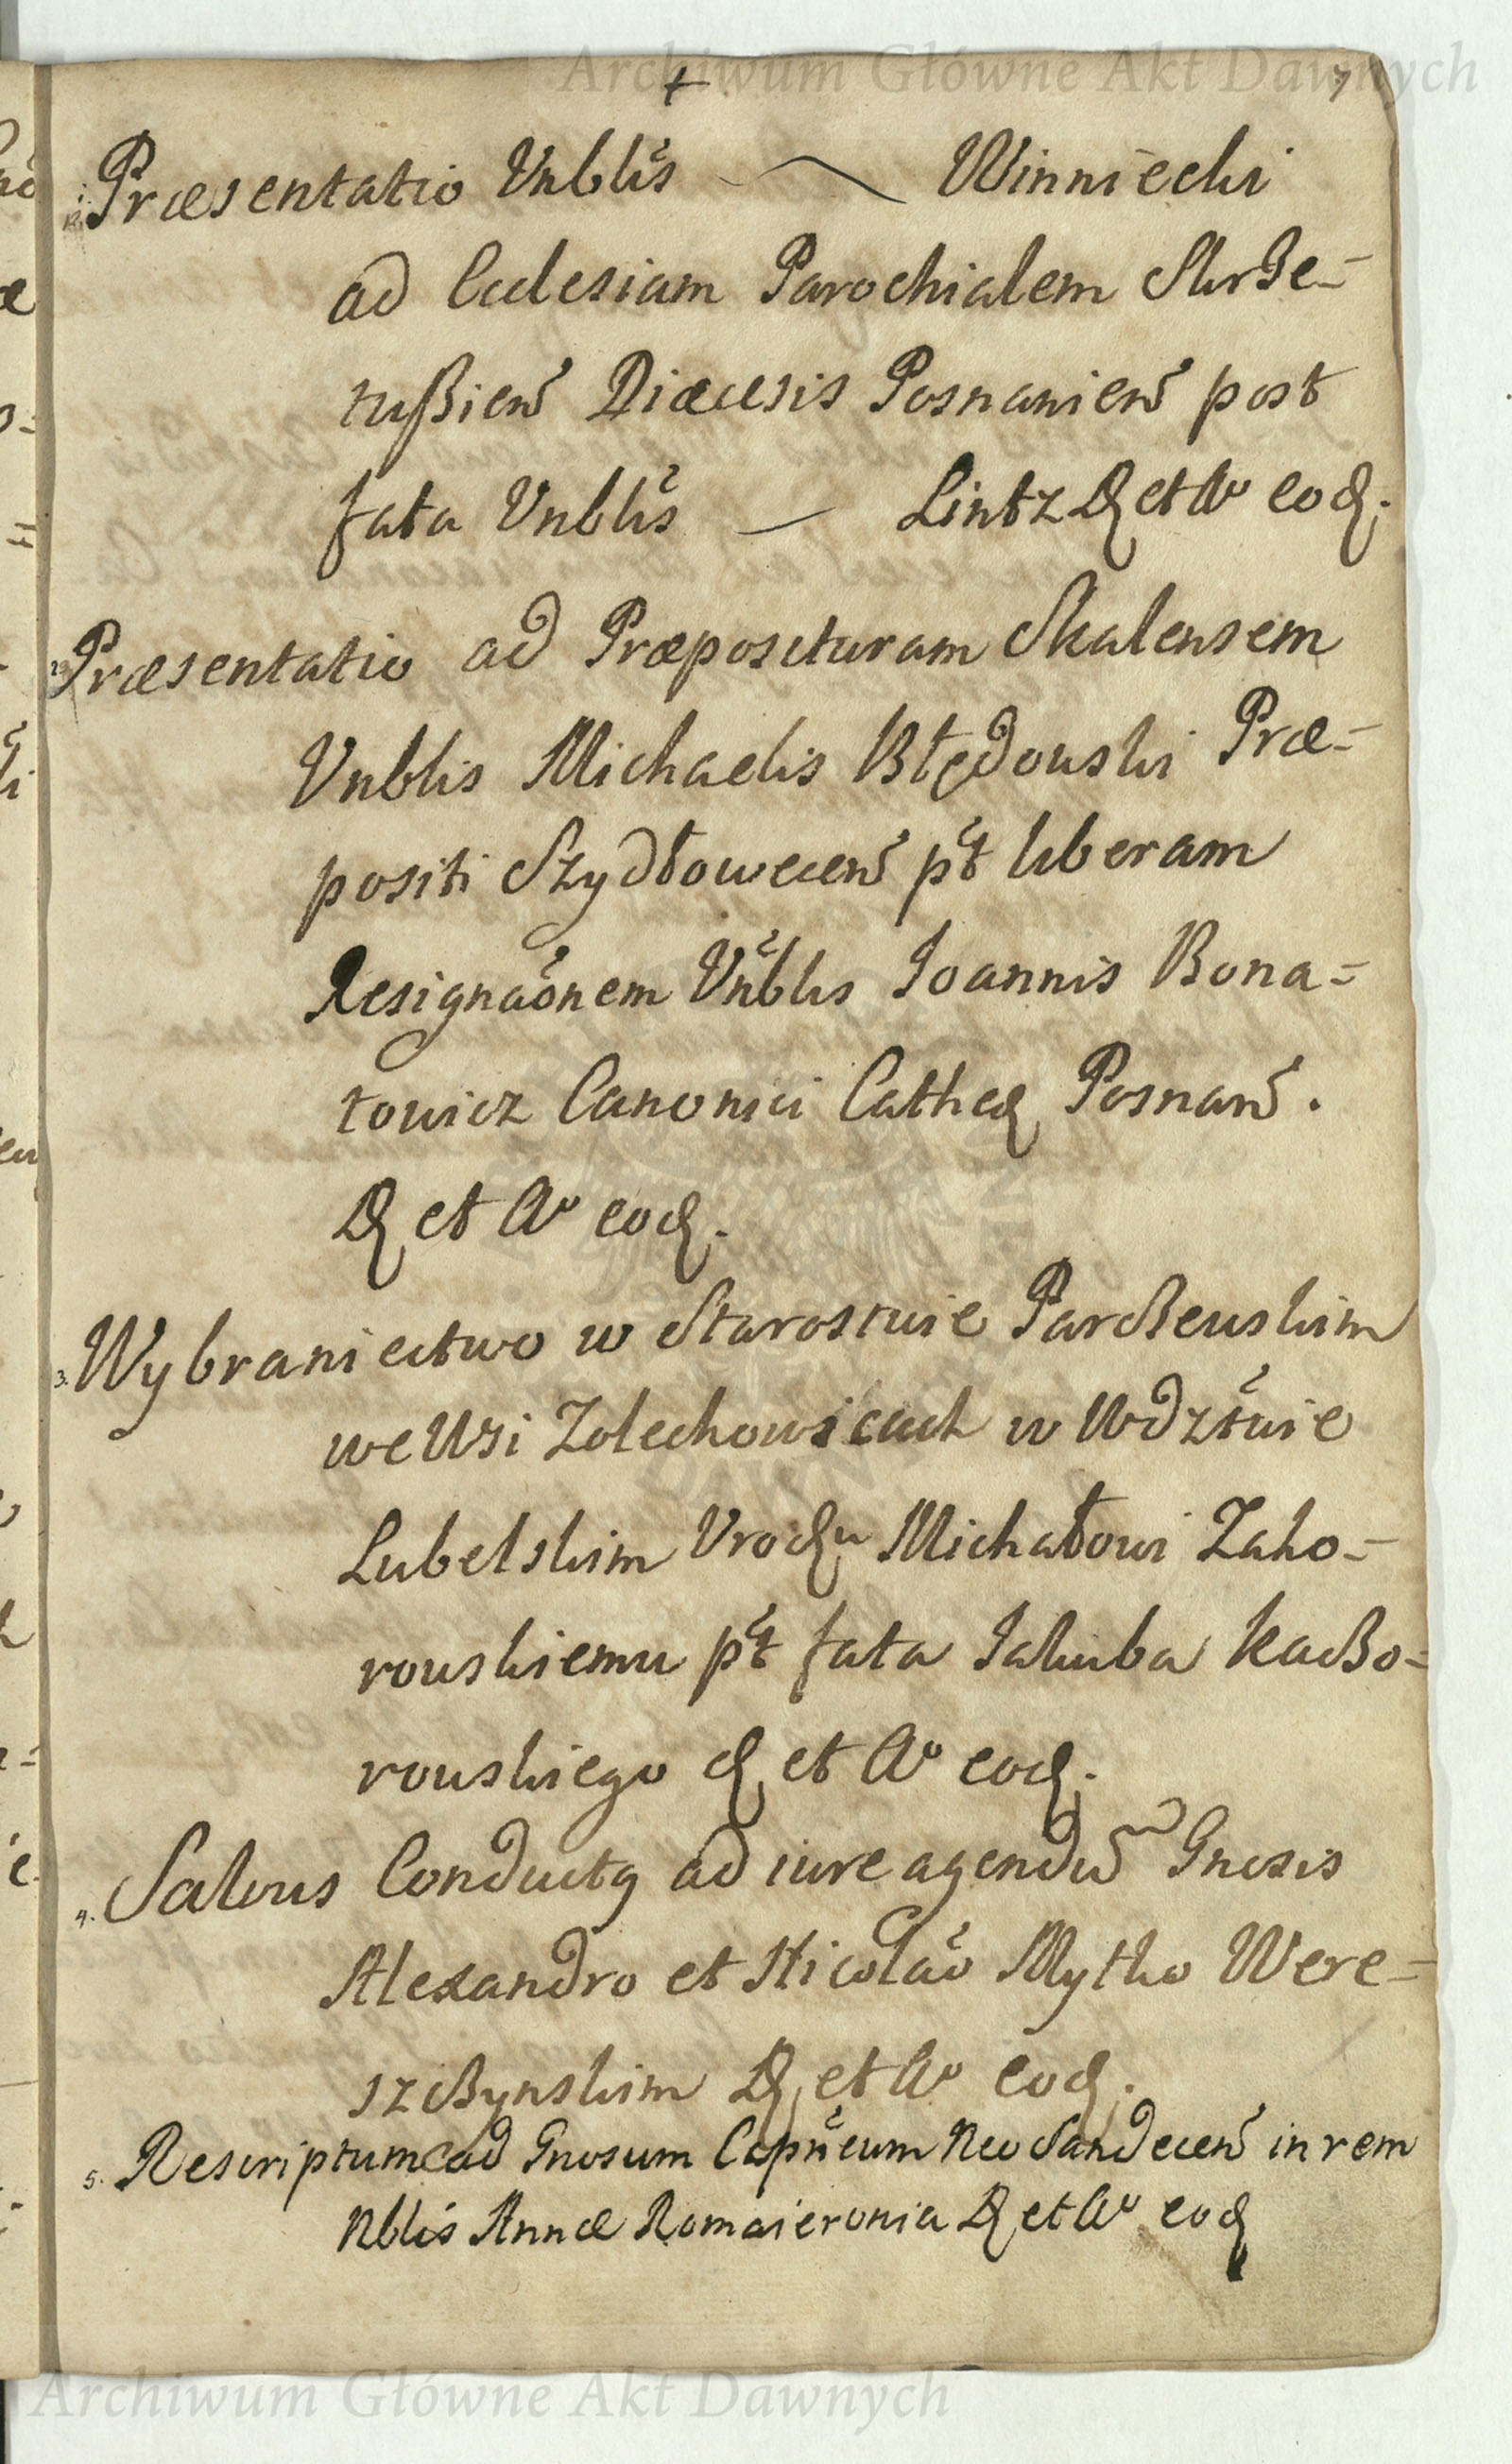 Archiwum Główne Akt Dawnych
7
1. Præsentatio Vnblis — Winniecki
ad Ecclesiam Parochialem Skrze-
tußień Diæcesis Posnanień post
fata Vnblis — Lintz D et Aº eod.
2. Præsentatio ad Præposituram Skalensem
Vnblis Michaelis Błędowski Præ-
positi Szydłowiecen̄ pt liberam
Resignaōnem Vnblis Ioannis Bona-
towicz Canonici Cathed Posnan̄.
D et Aº eod.
3. Wybraniectwo w Starostwie Parczewskim
we Wsi Zolechowicach w Wdztwie
Lubelskim Urodu Michałowi Zaho-
rowskiemu pt fata Iakuba Kaczo-
rowskiego d et Aº eod.
4. Salvus Conductg ad iure agendū Gnosis
Alexandro et Nicolao Mytko Were-
szczynskim D et Aº eod.
5. Rescriptum ad Gnosum Capneum Neo Sandecen̄ in rem
Nblis Annæ D et Aº eod
Archiwum Główne Akt Dawnych